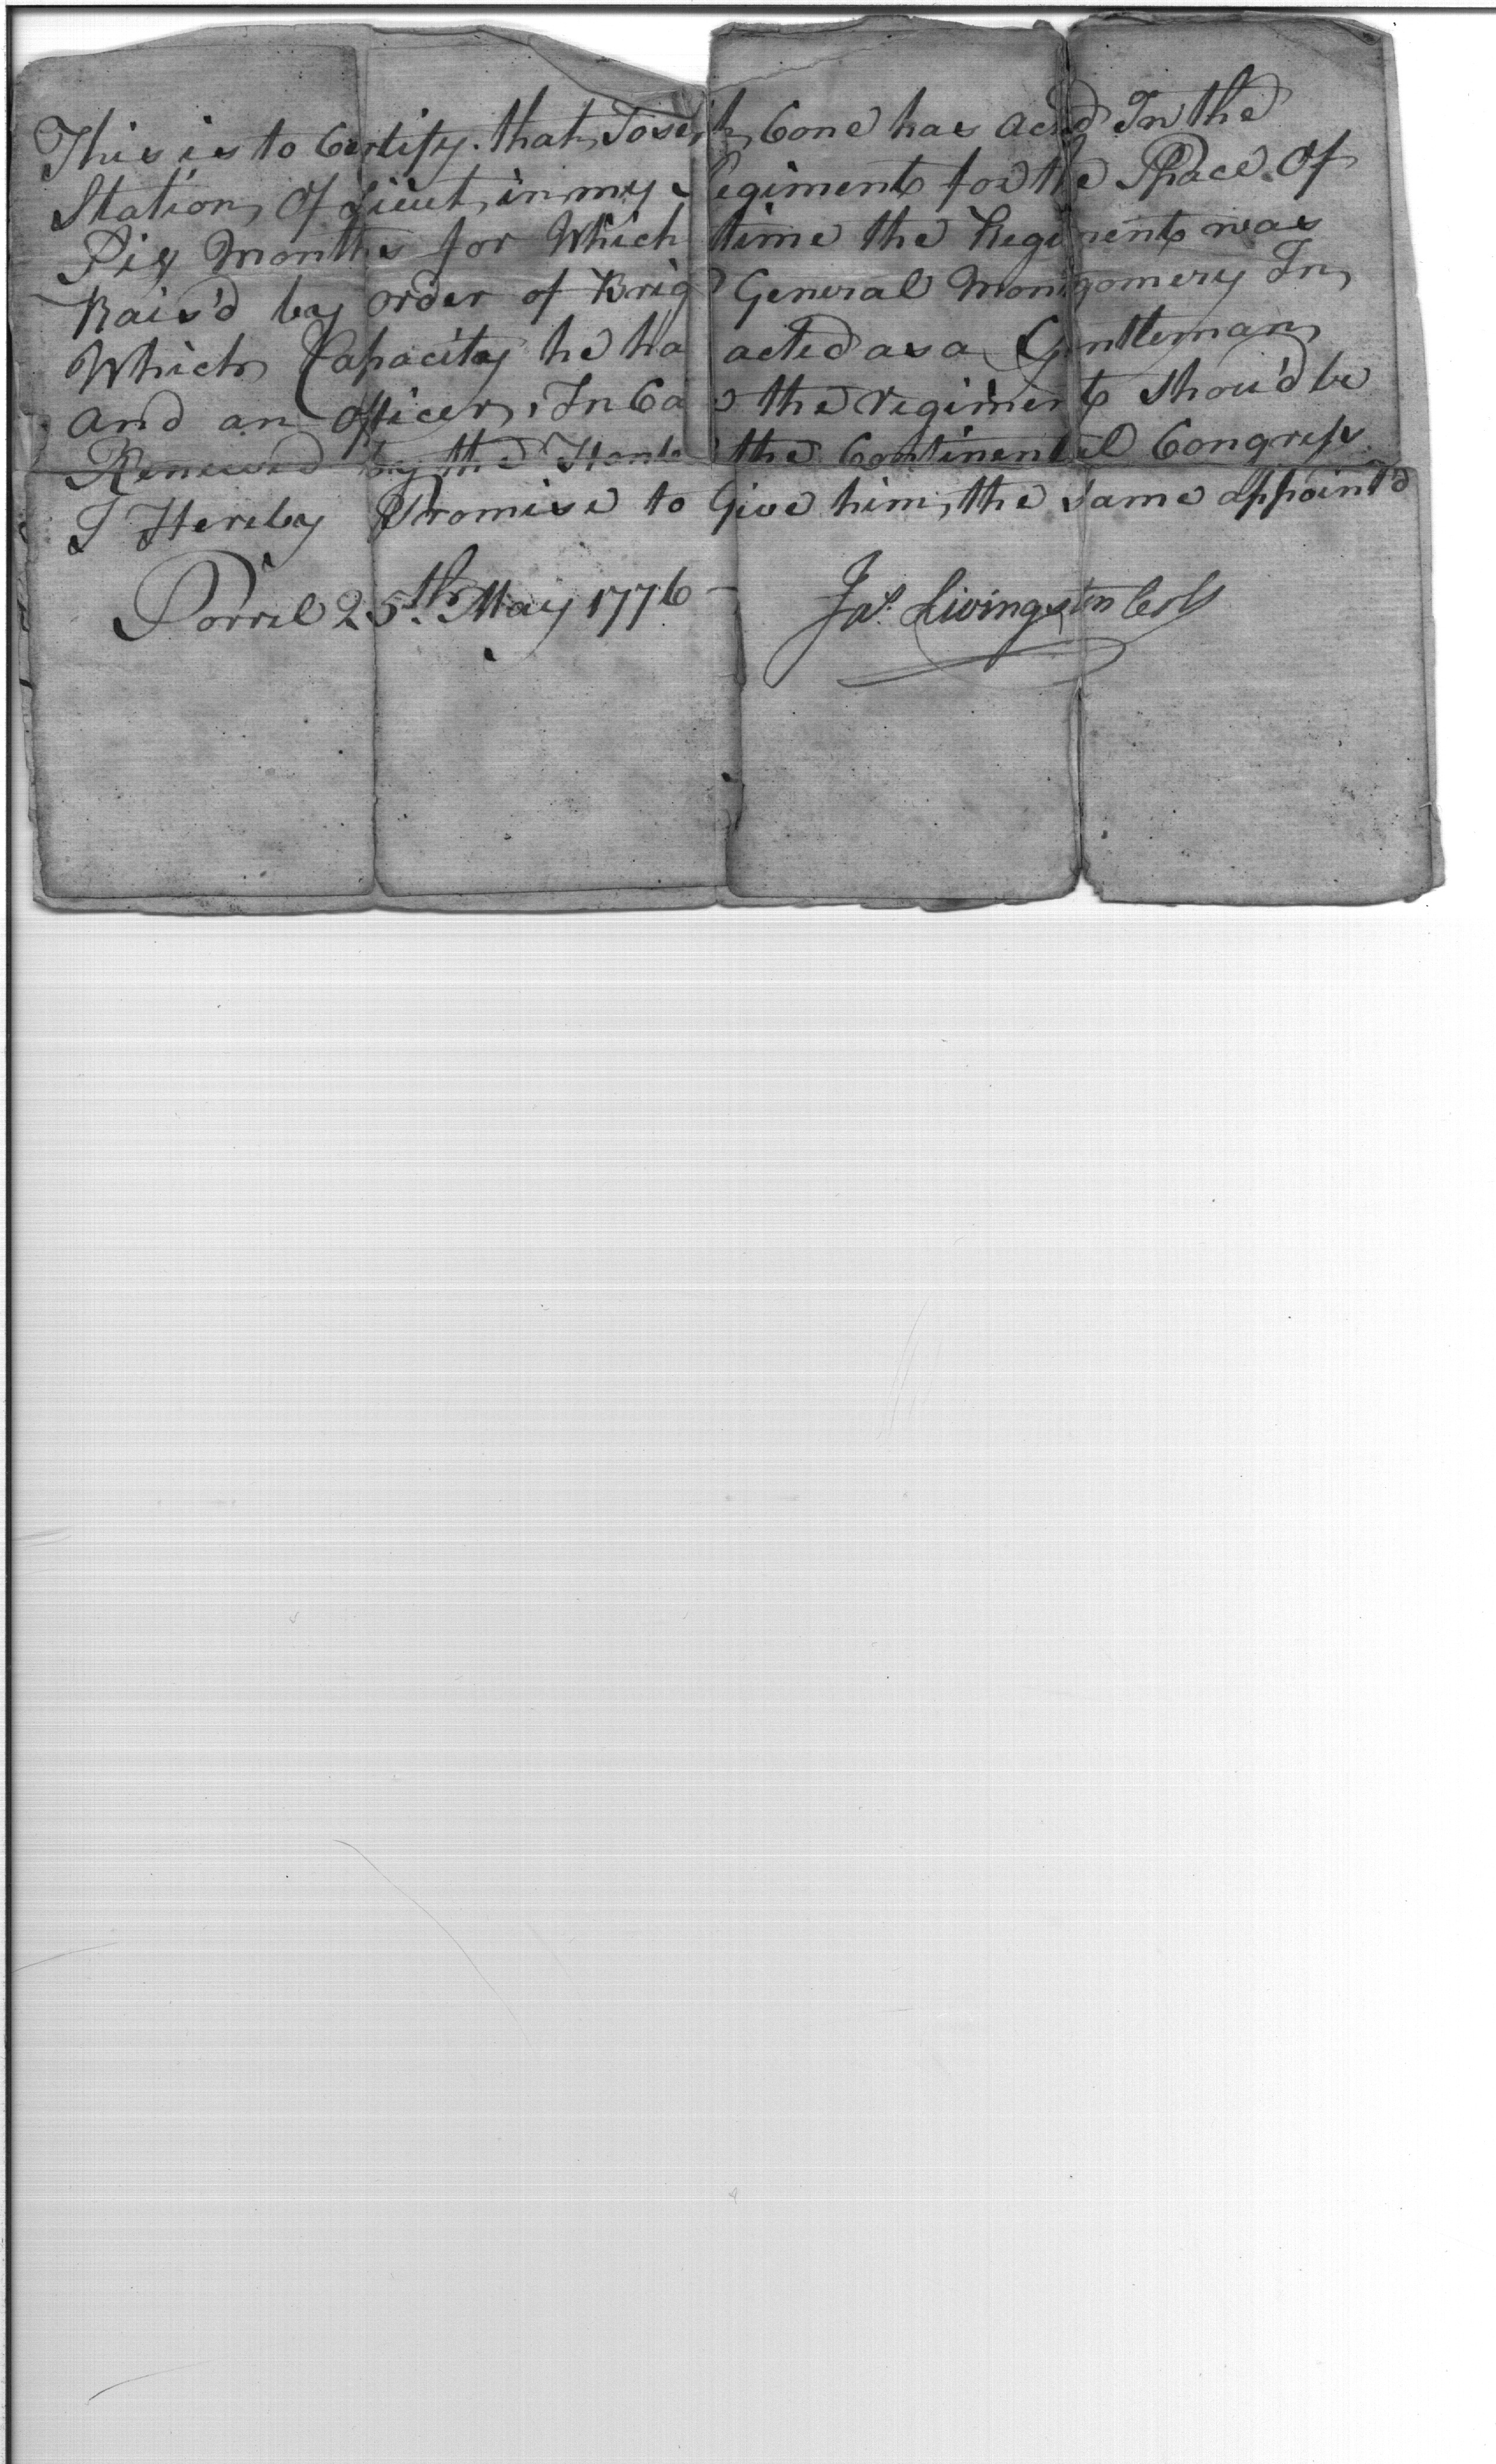 This is to Certify that Joseph Cone has acted In the
Station Of Lieut in my Regiment for the Space Of
Six Months for Which time the Regiment was
Rais'd by order of Brigd General Montgomery In
Which Capacity he ha acted as a Gentleman
and an Officer, In Ca e the regiment shou'd be
Renewed by the Honble the Continental Congress
I Hereby Promise to Give him the same appoint'd
Sorrel 25th May 1776 - Jas. Livingston Coll